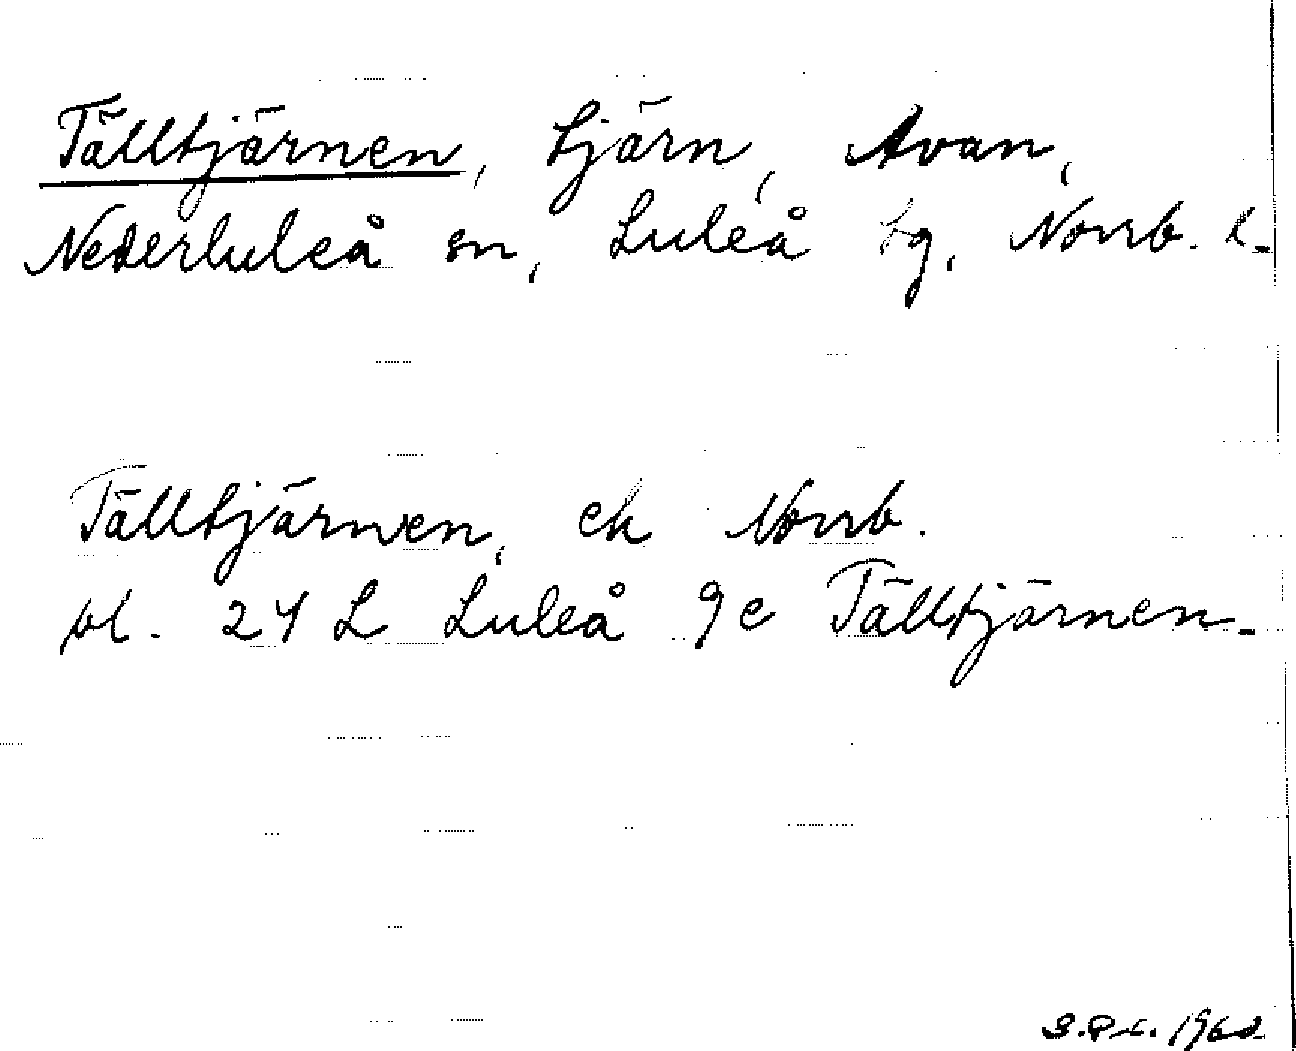 Tälltjärnen, tjärn, Avan,
Nederluleå sn, Luleå tg, Norrb. l.
Tälltjärnen, ek Norrb.
bl. 24 L Luleå 9e Tälltjärnen.
1962